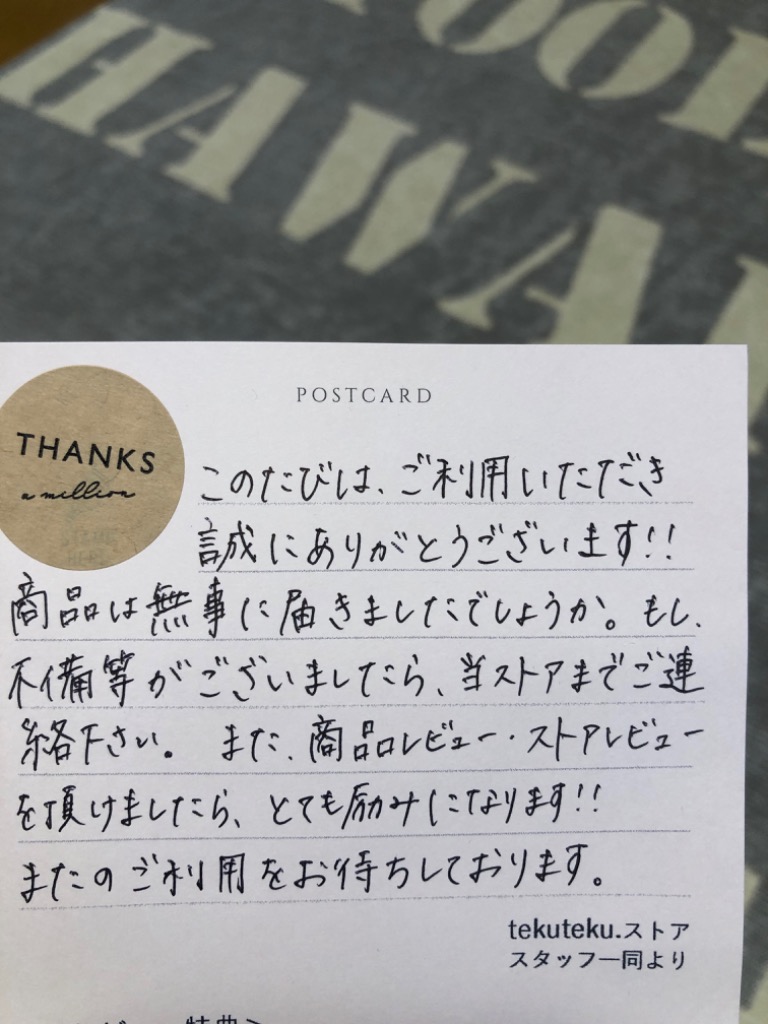 HAWA
POSTCARD
THANKS
a million
このたびは、ご利用いただき
誠にありがとうございます!!
商品は無事に届きましたでしょうか。もし、
不備等がございましたら、当ストアまでご連
絡下さい。また、商品レビュー・ストアレビュー
を頂けましたら、とても励みになります!!
またのご利用をお待ちしております。
tekuteku.ストア
スタッフ一同より